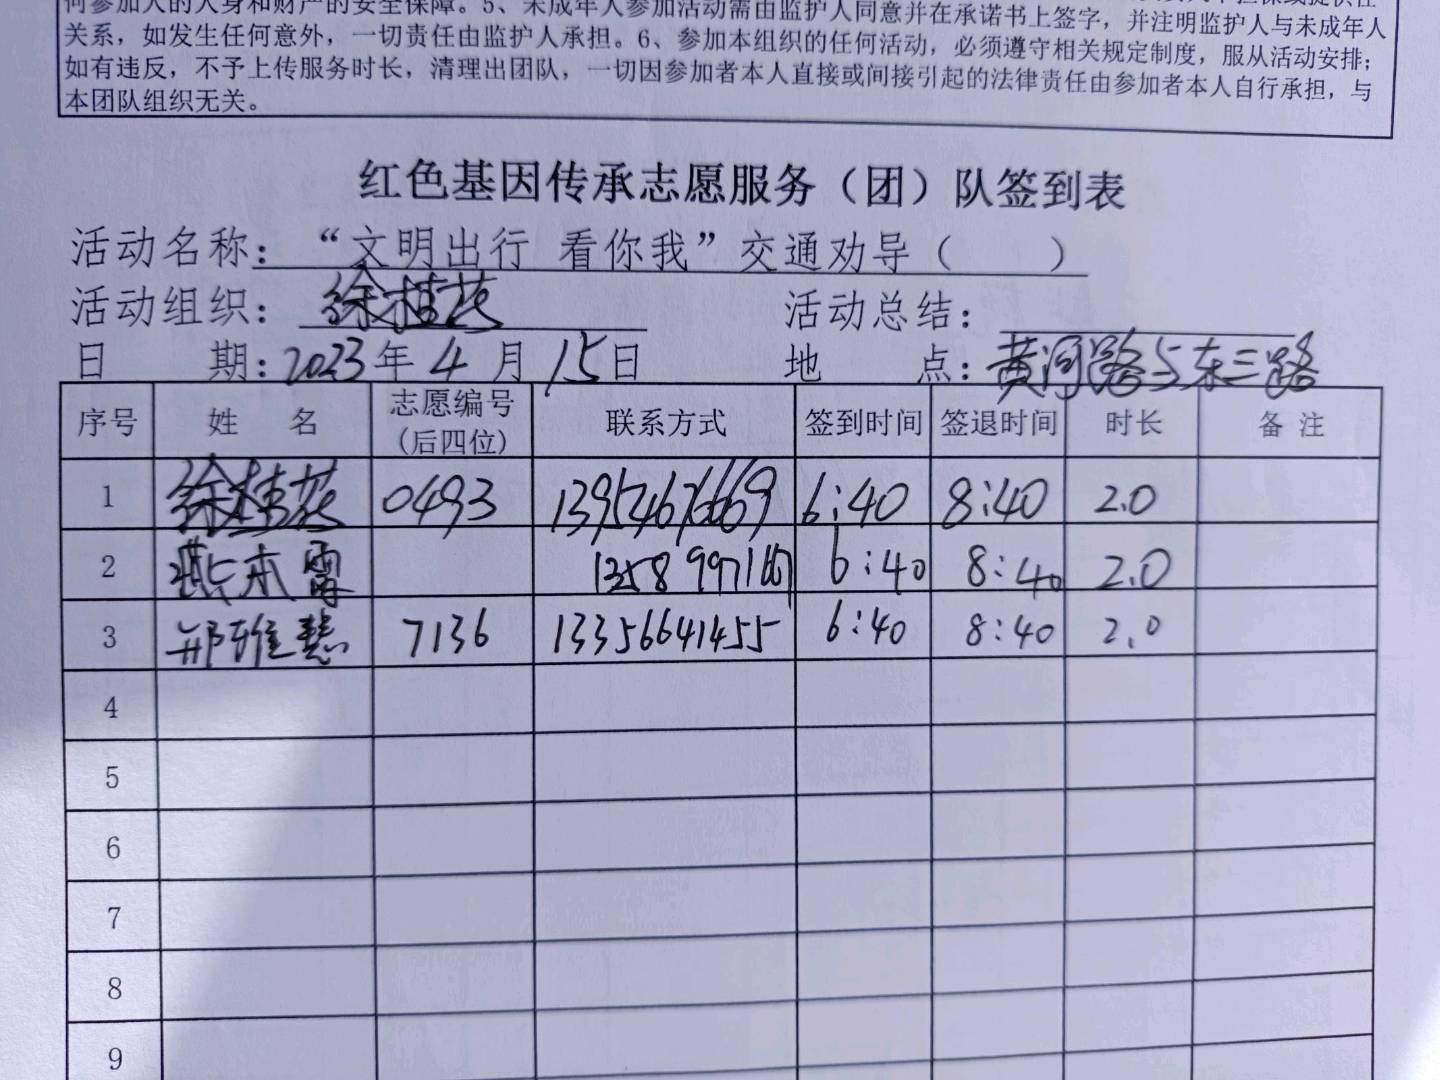 何参加人的人身和财产的安全保障。5、未成年人参加活动需由监护人同意并在承诺书上签字，并注明监护人与未成年人
关系，如发生任何意外，一切责任由监护人承担。6、参加本组织的任何活动，必须遵守相关规定制度，服从活动安排；
如有违反，不予上传服务时长，清理出团队，一切因参加者本人直接或间接引起的法律责任由参加者本人自行承担，与
本团队组织无关。
红色基因传承志愿服务（团）队签到表
活动名称：“文明出行 看你我”交通劝导（ ）
活动组织：徐桂花 活动总结：
日 期：2023年4月15日 地 点：黄河路与东三路
序号 姓 名 志愿编号（后四位） 联系方式 签到时间 签退时间 时长 备 注
1 徐桂花 0493 13954676669 6:40 8:40 2.0
2 燕本雷 6:40 8:40 2.0
3 邢雅慧 7136 13356641455 6:40 8:40 2.0
4
5
6
7
8
9